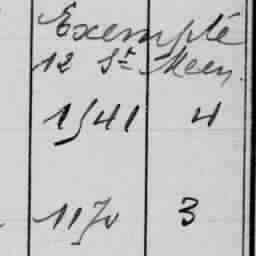 Exempté
12 St Meen.
1541 4
1170 3